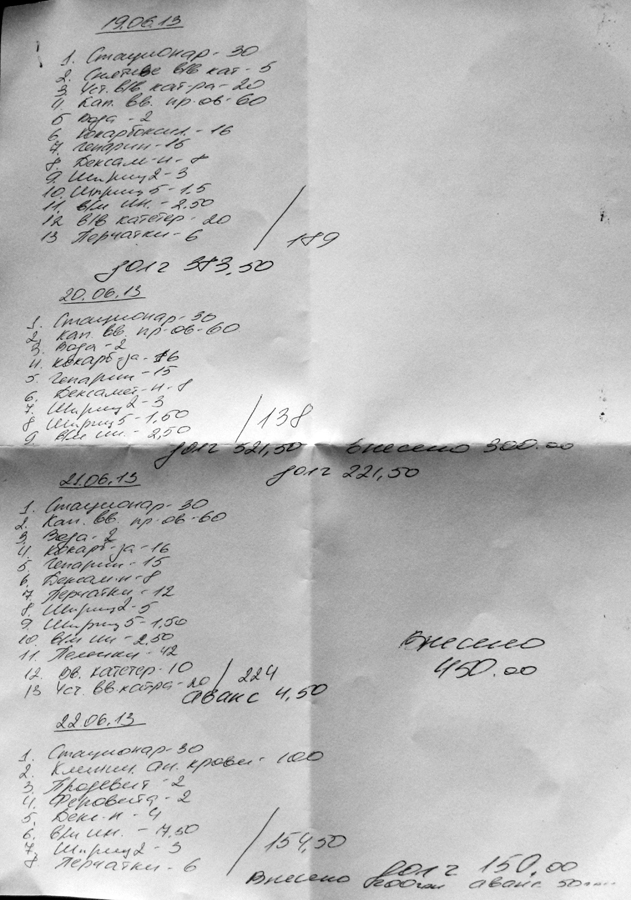 19.06.13
1. Стационар - 30
2. Снятие в/в кат - 5
3 Уст. в/в кат-ра - 20
4. Кап. вв. пр-ов - 60
5 Вода - 2
6. Кокарбоксил. - 16
7. Гепарин - 15
8. Дексам-н - 8
9. Шприц 2 - 3
10. Шприц 5 - 1,5
11. в/м ин. - 2,50
12 в/в катетер - 20
13 Перчатки - 6
/ 189
долг 383,50
20.06.13
1. Стационар - 30
2. Кап. вв. пр-ов - 60
3. Вода - 2
4. Кокарб-за - 16
5. Гепарин - 15
6. Дексамет-н - 8
7. Шприц 2 - 3
8 Шприц 5 - 1,50
9. в/м ин. - 2,50
/ 138
долг 521,50 Внесено 300.00
долг 221,50
21.06.13
1. Стационар - 30
2. Кап. вв. пр-ов - 60
3 Вода - 2
4. Кокарб-за - 16
5. Гепарин - 15
6. Дексам-н - 8
7. Перчатки - 12
8 Шприц 2 - 5
9. Шприц 5 - 1,50
10. в/м ин - 2,50
11. Пеленки - 42
12. Вв. катетер - 10
13 Уст. вв катра - 20 / 224
аванс 4,50
Внесено
450.00
22.06.13
1. Стационар - 30
2. Клинич. ан. крови - 100
3. - 2
4. - 2
5. Декс-н - 4
6. в/м ин. - 7,50
7. Шприц 2 - 3
8 Перчатки - 6
/ 154,50
долг 150,00
Внесено аванс 50